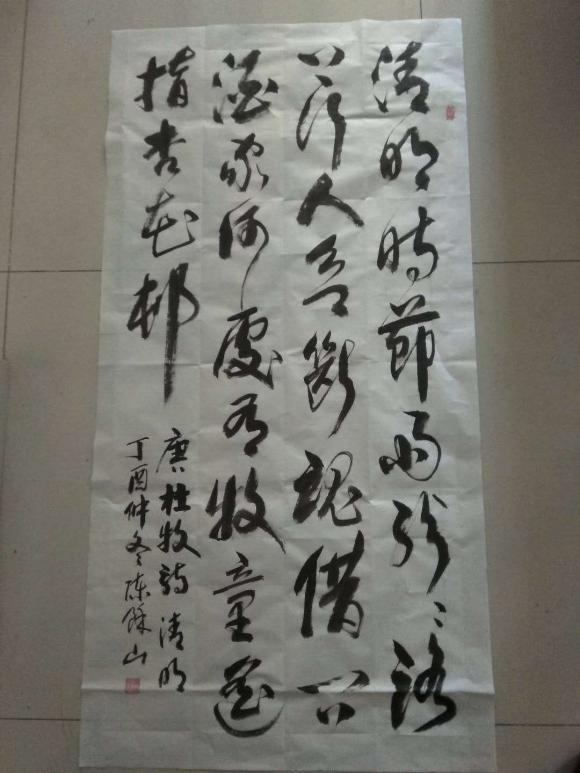 清明时節雨纷々路
上行人欲断魂借问
酒家何處有牧童遥
指杏花邨
唐杜牧诗清明
丁酉仲冬陈山